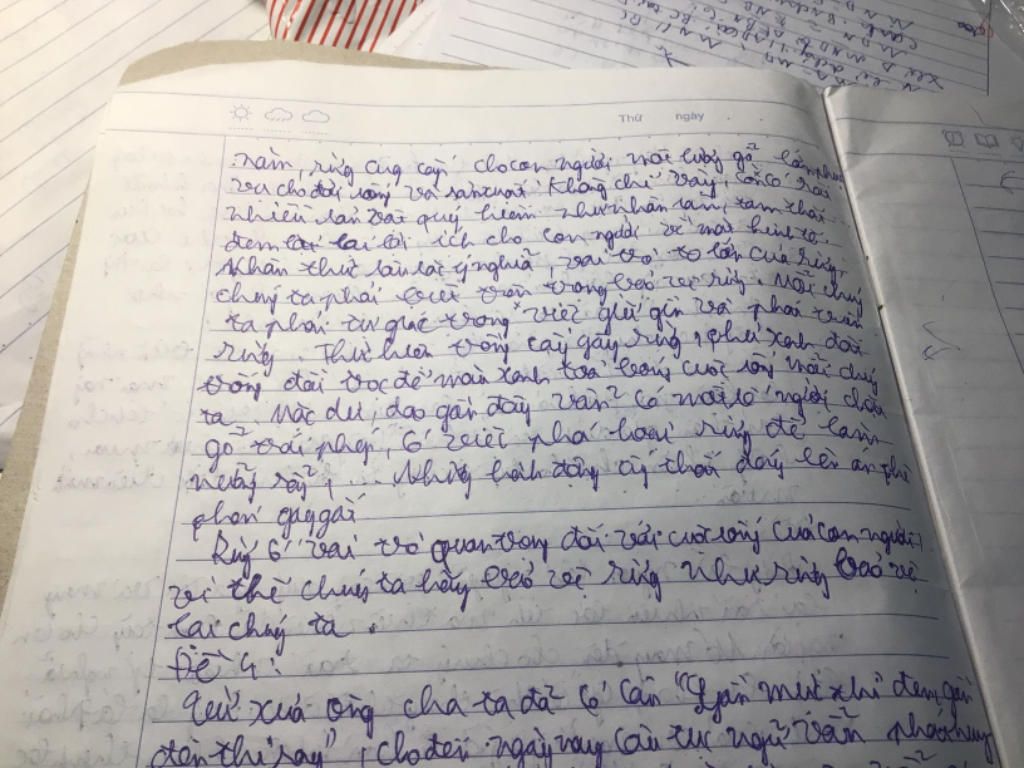 Thứ ngày
năm, rừng cung cấp cho con người một lượng gỗ lớn phục
vụ cho đời sống và sản xuất. Không chỉ vậy, còn có rất
nhiều sản vật quý hiếm như nhân sâm, tam thất
đem lại lợi ích cho con người về mặt kinh tế.
Nhận thức sâu sắc ý nghĩa, vai trò to lớn của rừng,
chúng ta phải biết trân trọng bảo vệ rừng. Mỗi chúng
ta phải tự giác trong việc giữ gìn và phát triển
rừng. Thực hiện trồng cây gây rừng, phủ xanh đất
trống đồi trọc để màu xanh toả bóng cuộc sống mỗi chúng
ta. Mặc dù dạo gần đây vẫn có một số người chặt
gỗ trái phép, có việc phá hoại rừng để làm
nương rẫy, ... Những hành động ấy thật đáng lên án phê
phán gay gắt
Rừng có vai trò quan trọng đối với cuộc sống của con người
vì thế chúng ta hãy bảo vệ rừng như rừng bảo vệ
lại chúng ta.
Đề 4:
Từ xưa ông cha ta đã có câu "Gần mực thì đen, gần
đèn thì rạng", cho đến ngày nay câu tục ngữ vẫn phát huy